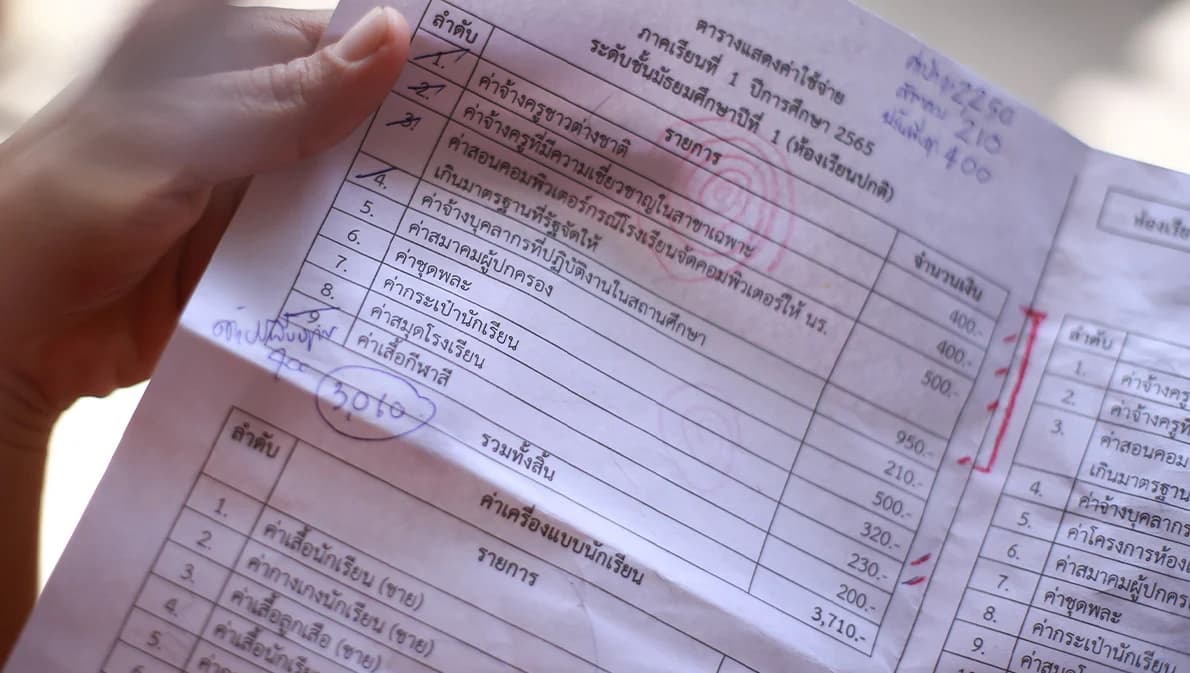 ตารางแสดงค่าใช้จ่าย
ภาคเรียนที่ 1 ปีการศึกษา 2565
ระดับชั้นมัธยมศึกษาปีที่ 1 (ห้องเรียนปกติ)
2250
210
400
ลำดับ รายการ จำนวนเงิน
1. ค่าจ้างครูชาวต่างชาติ 400.-
2. ค่าจ้างครูที่มีความเชี่ยวชาญในสาขาเฉพาะ 400.-
3. ค่าสอนคอมพิวเตอร์กรณีโรงเรียนจัดคอมพิวเตอร์ให้ นร. 500.-
เกินมาตรฐานที่รัฐจัดให้
4. ค่าจ้างบุคลากรที่ปฏิบัติงานในสถานศึกษา 950.-
5. ค่าสมาคมผู้ปกครอง 210.-
6. ค่าชุดพละ 500.-
7. ค่ากระเป๋านักเรียน 320.-
8. ค่าสมุดโรงเรียน 230.-
9. ค่าเสื้อกีฬาสี 200.-
รวมทั้งสิ้น 3,710.-
3,010
ค่าเครื่องแบบนักเรียน
ลำดับ รายการ
1. ค่าเสื้อนักเรียน (ชาย)
2. ค่ากางเกงนักเรียน (ชาย)
3. ค่าเสื้อลูกเสือ (ชาย)
4. ค่าเสื้อนักเรีย
5.
ห้องเรีย
ลำดับ
1. ค่าจ้างครู
2. ค่าจ้างครูที่
3. ค่าสอนคอม
เกินมาตรฐา
4. ค่าจ้างบุคลากร
5. ค่าโครงการห้อง
6. ค่าสมาคมผู้ปกคร
7. ค่าชุดพละ
8. ค่ากระเป๋านักเรีย
9. ค่าสมุดโ